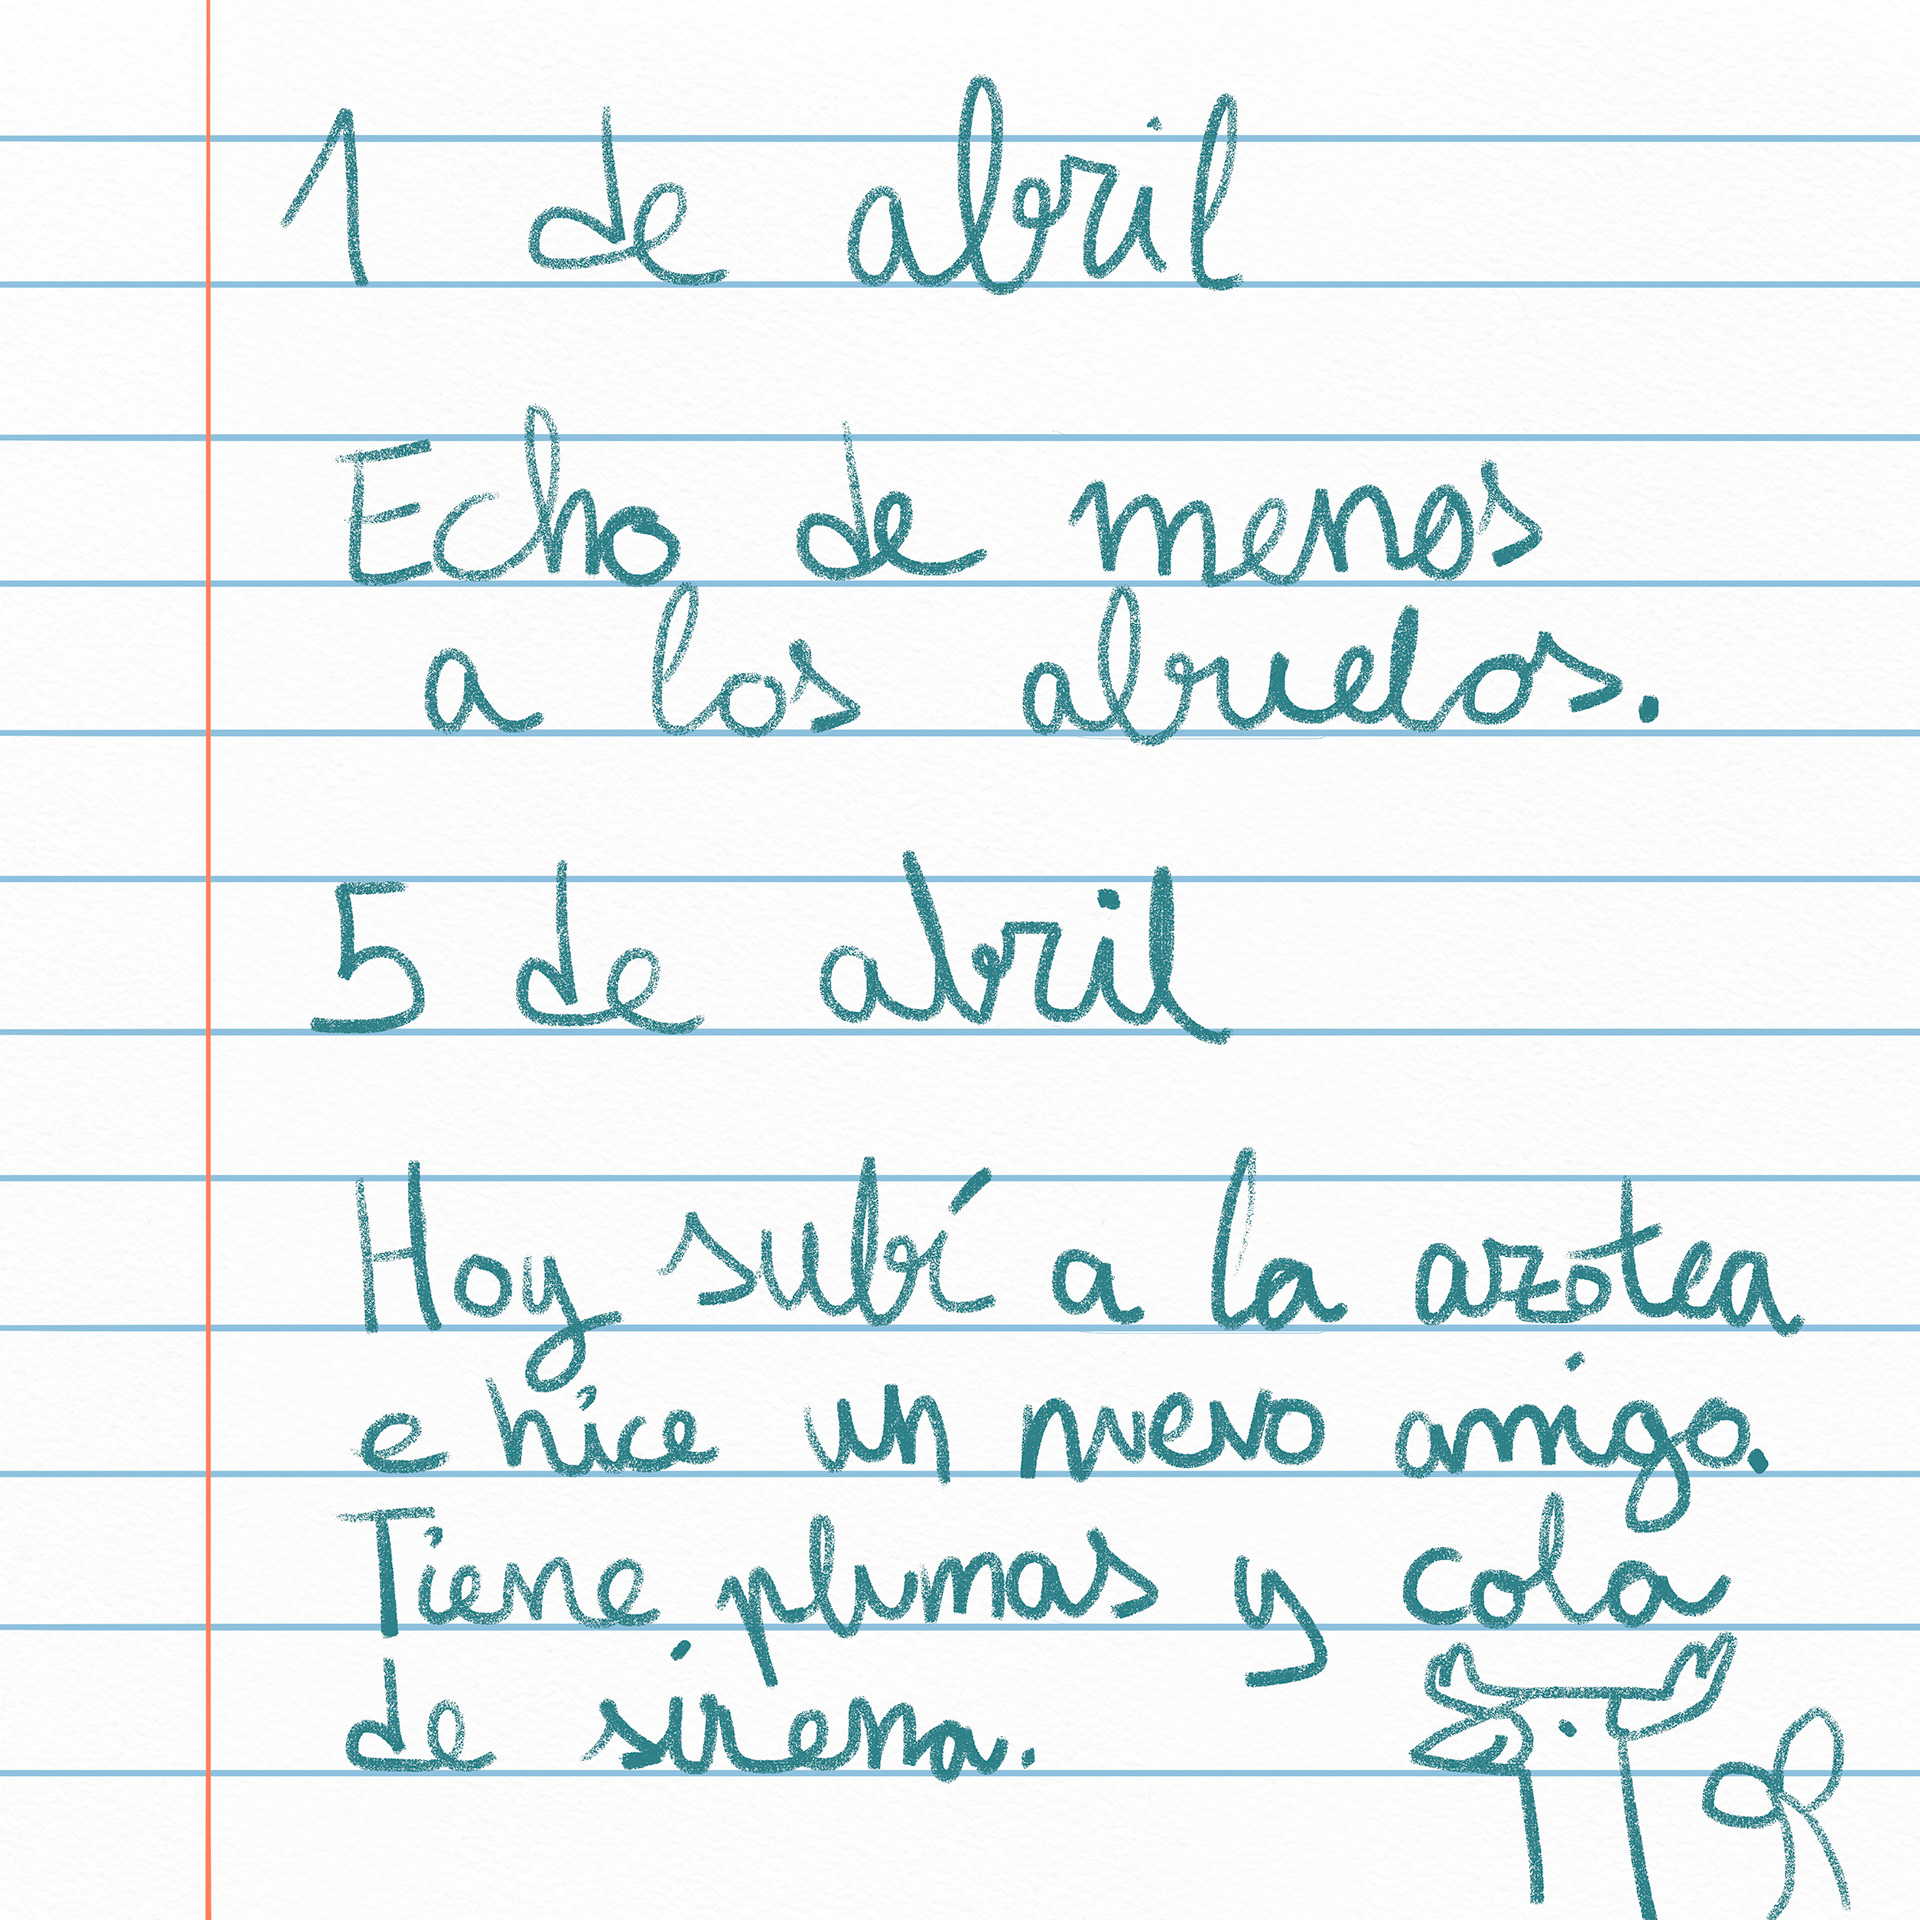 1 de abril
Echo de menos
a los abuelos.
5 de abril
Hoy subí a la azotea
e hice un nuevo amigo.
Tiene plumas y cola
de sirena.